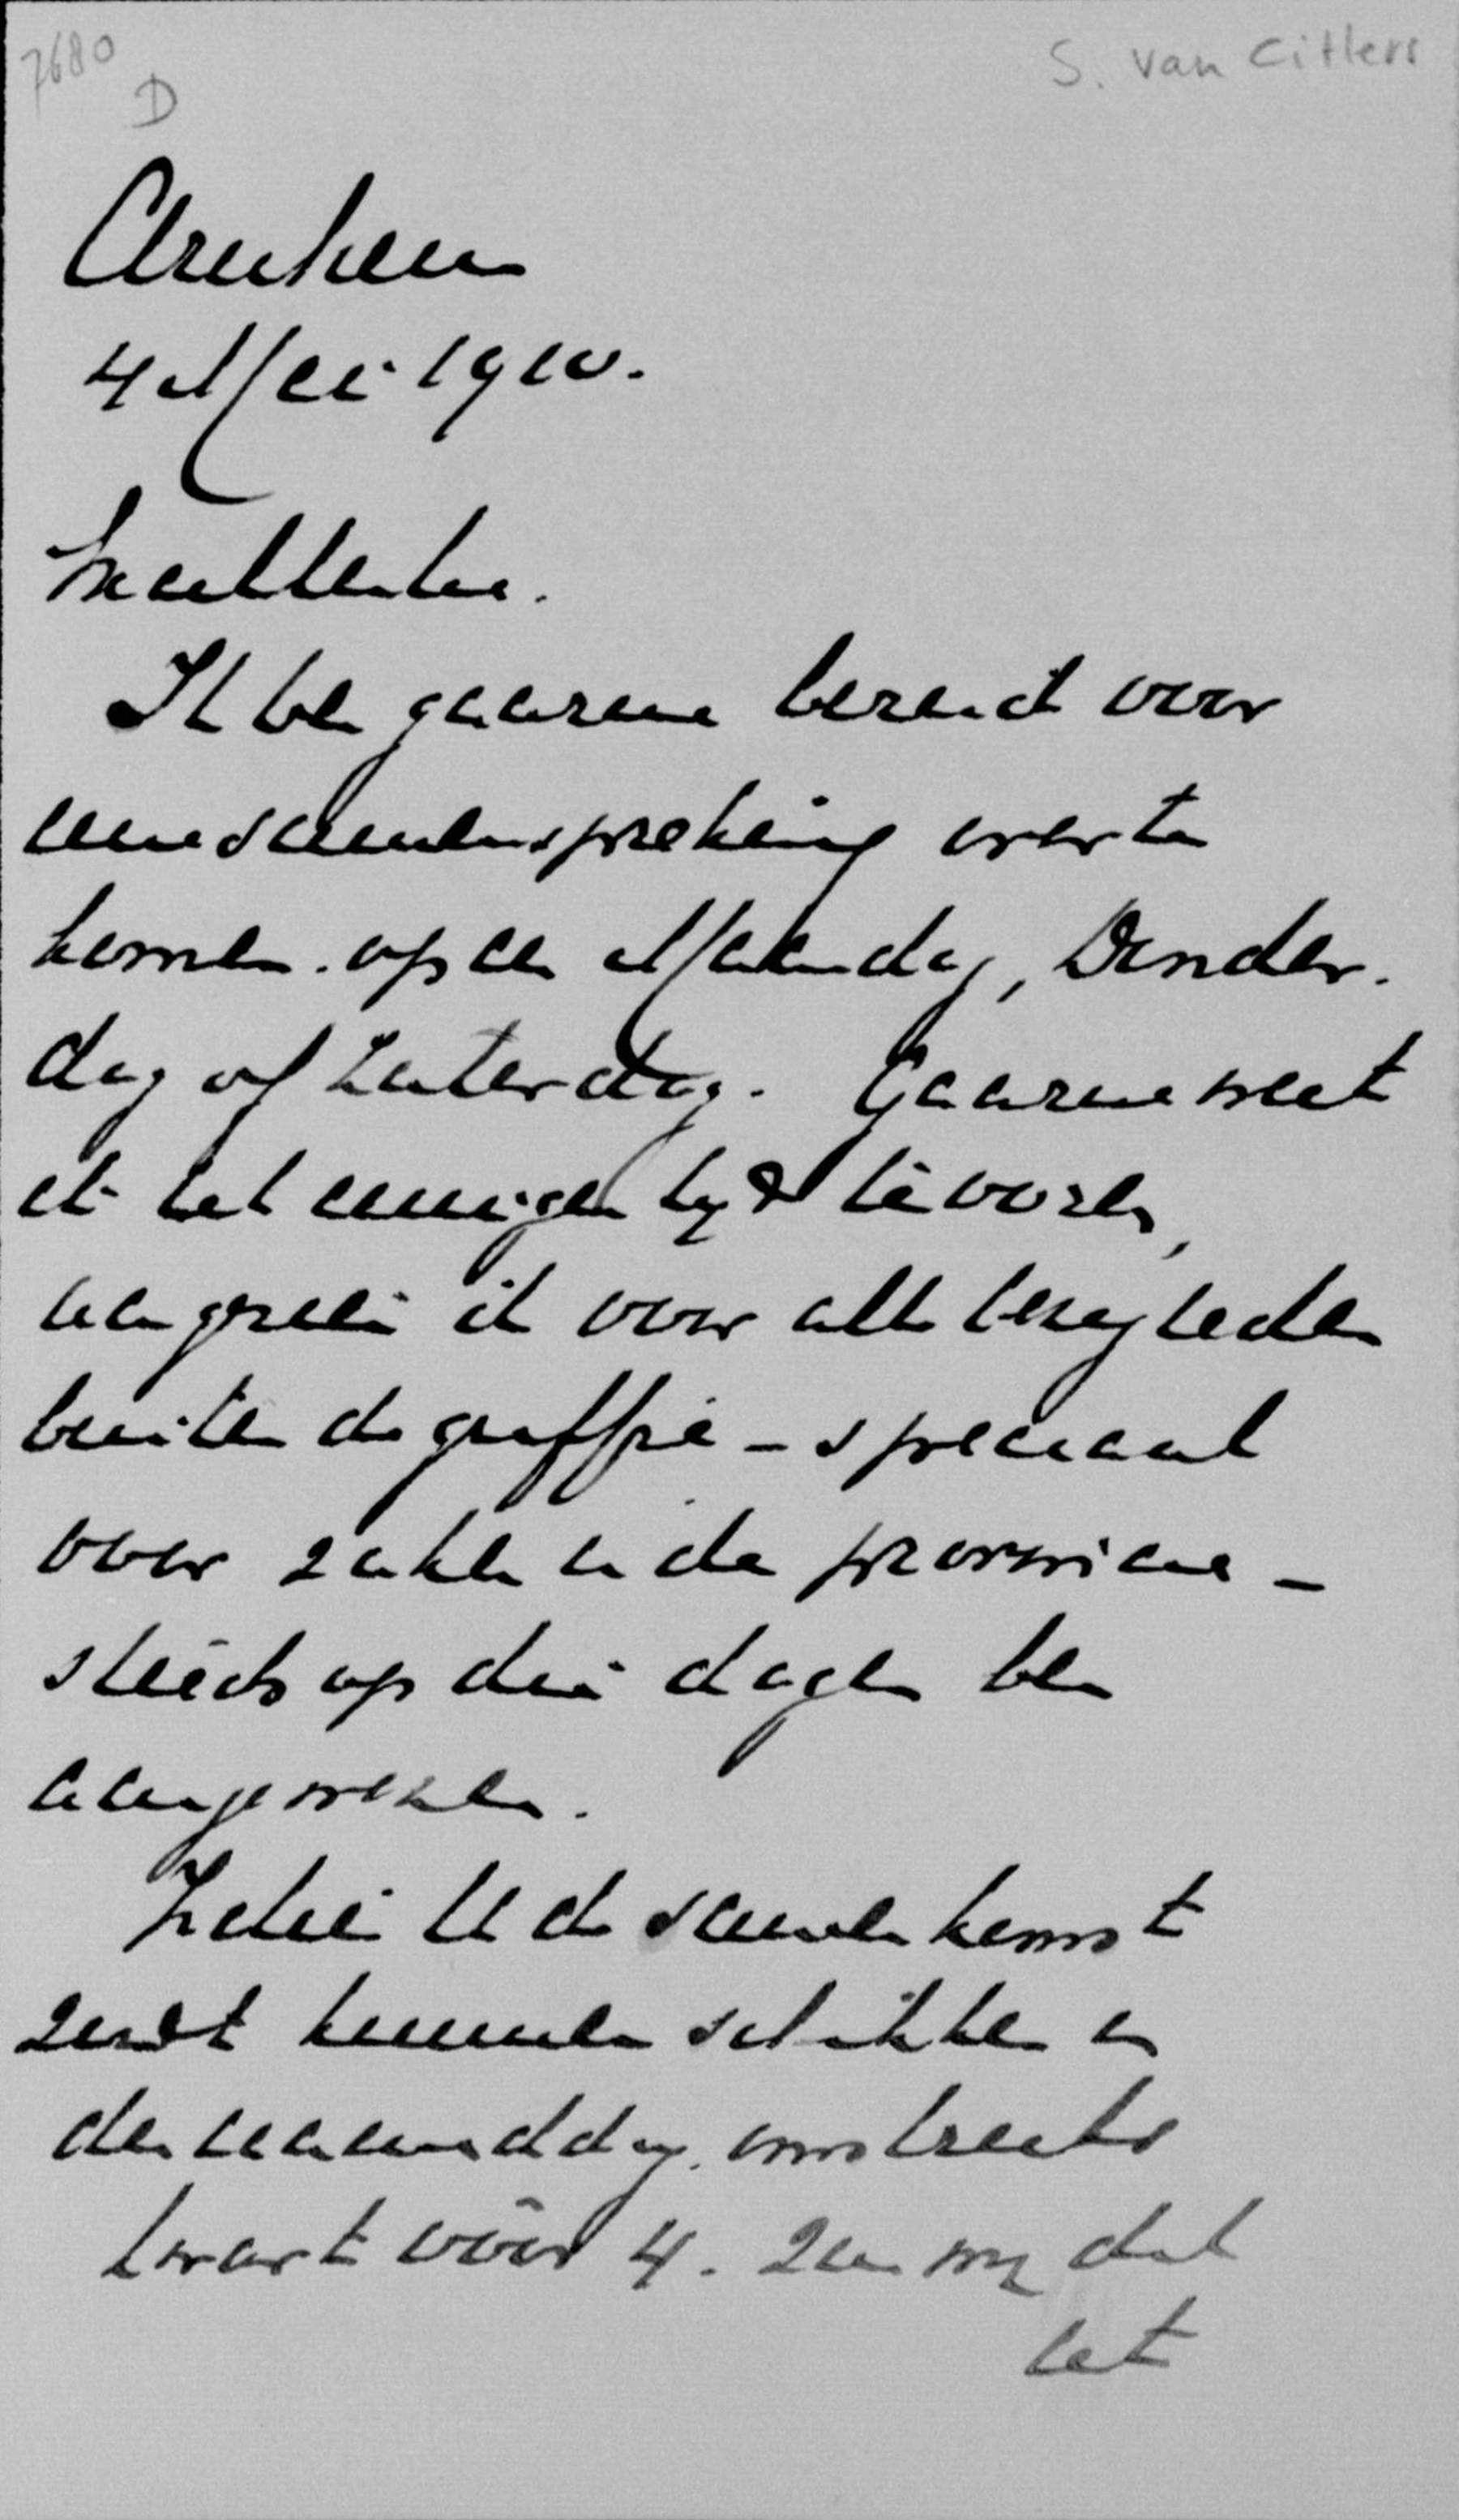 7680
D
S. van Citters
Arnhem
4 Mei 1910.
Excellentie.
Ik ben gaarne bereid voor
eene samenspreking over te
komen op een Maandag, Donder-
dag of Zaterdag. Gaarne weet
ik het eenigen tyd te voren,
aangezien ik voor alle bezigheden
buiten de griffie – speciaal
voor zaken in de provincie –
steeds op die dagen ben
aangewezen.
Indien U de samenkomst
zoudt kunnen schikken in
den namiddag, omstreeks
kwart vóór 4. zou my dat
het